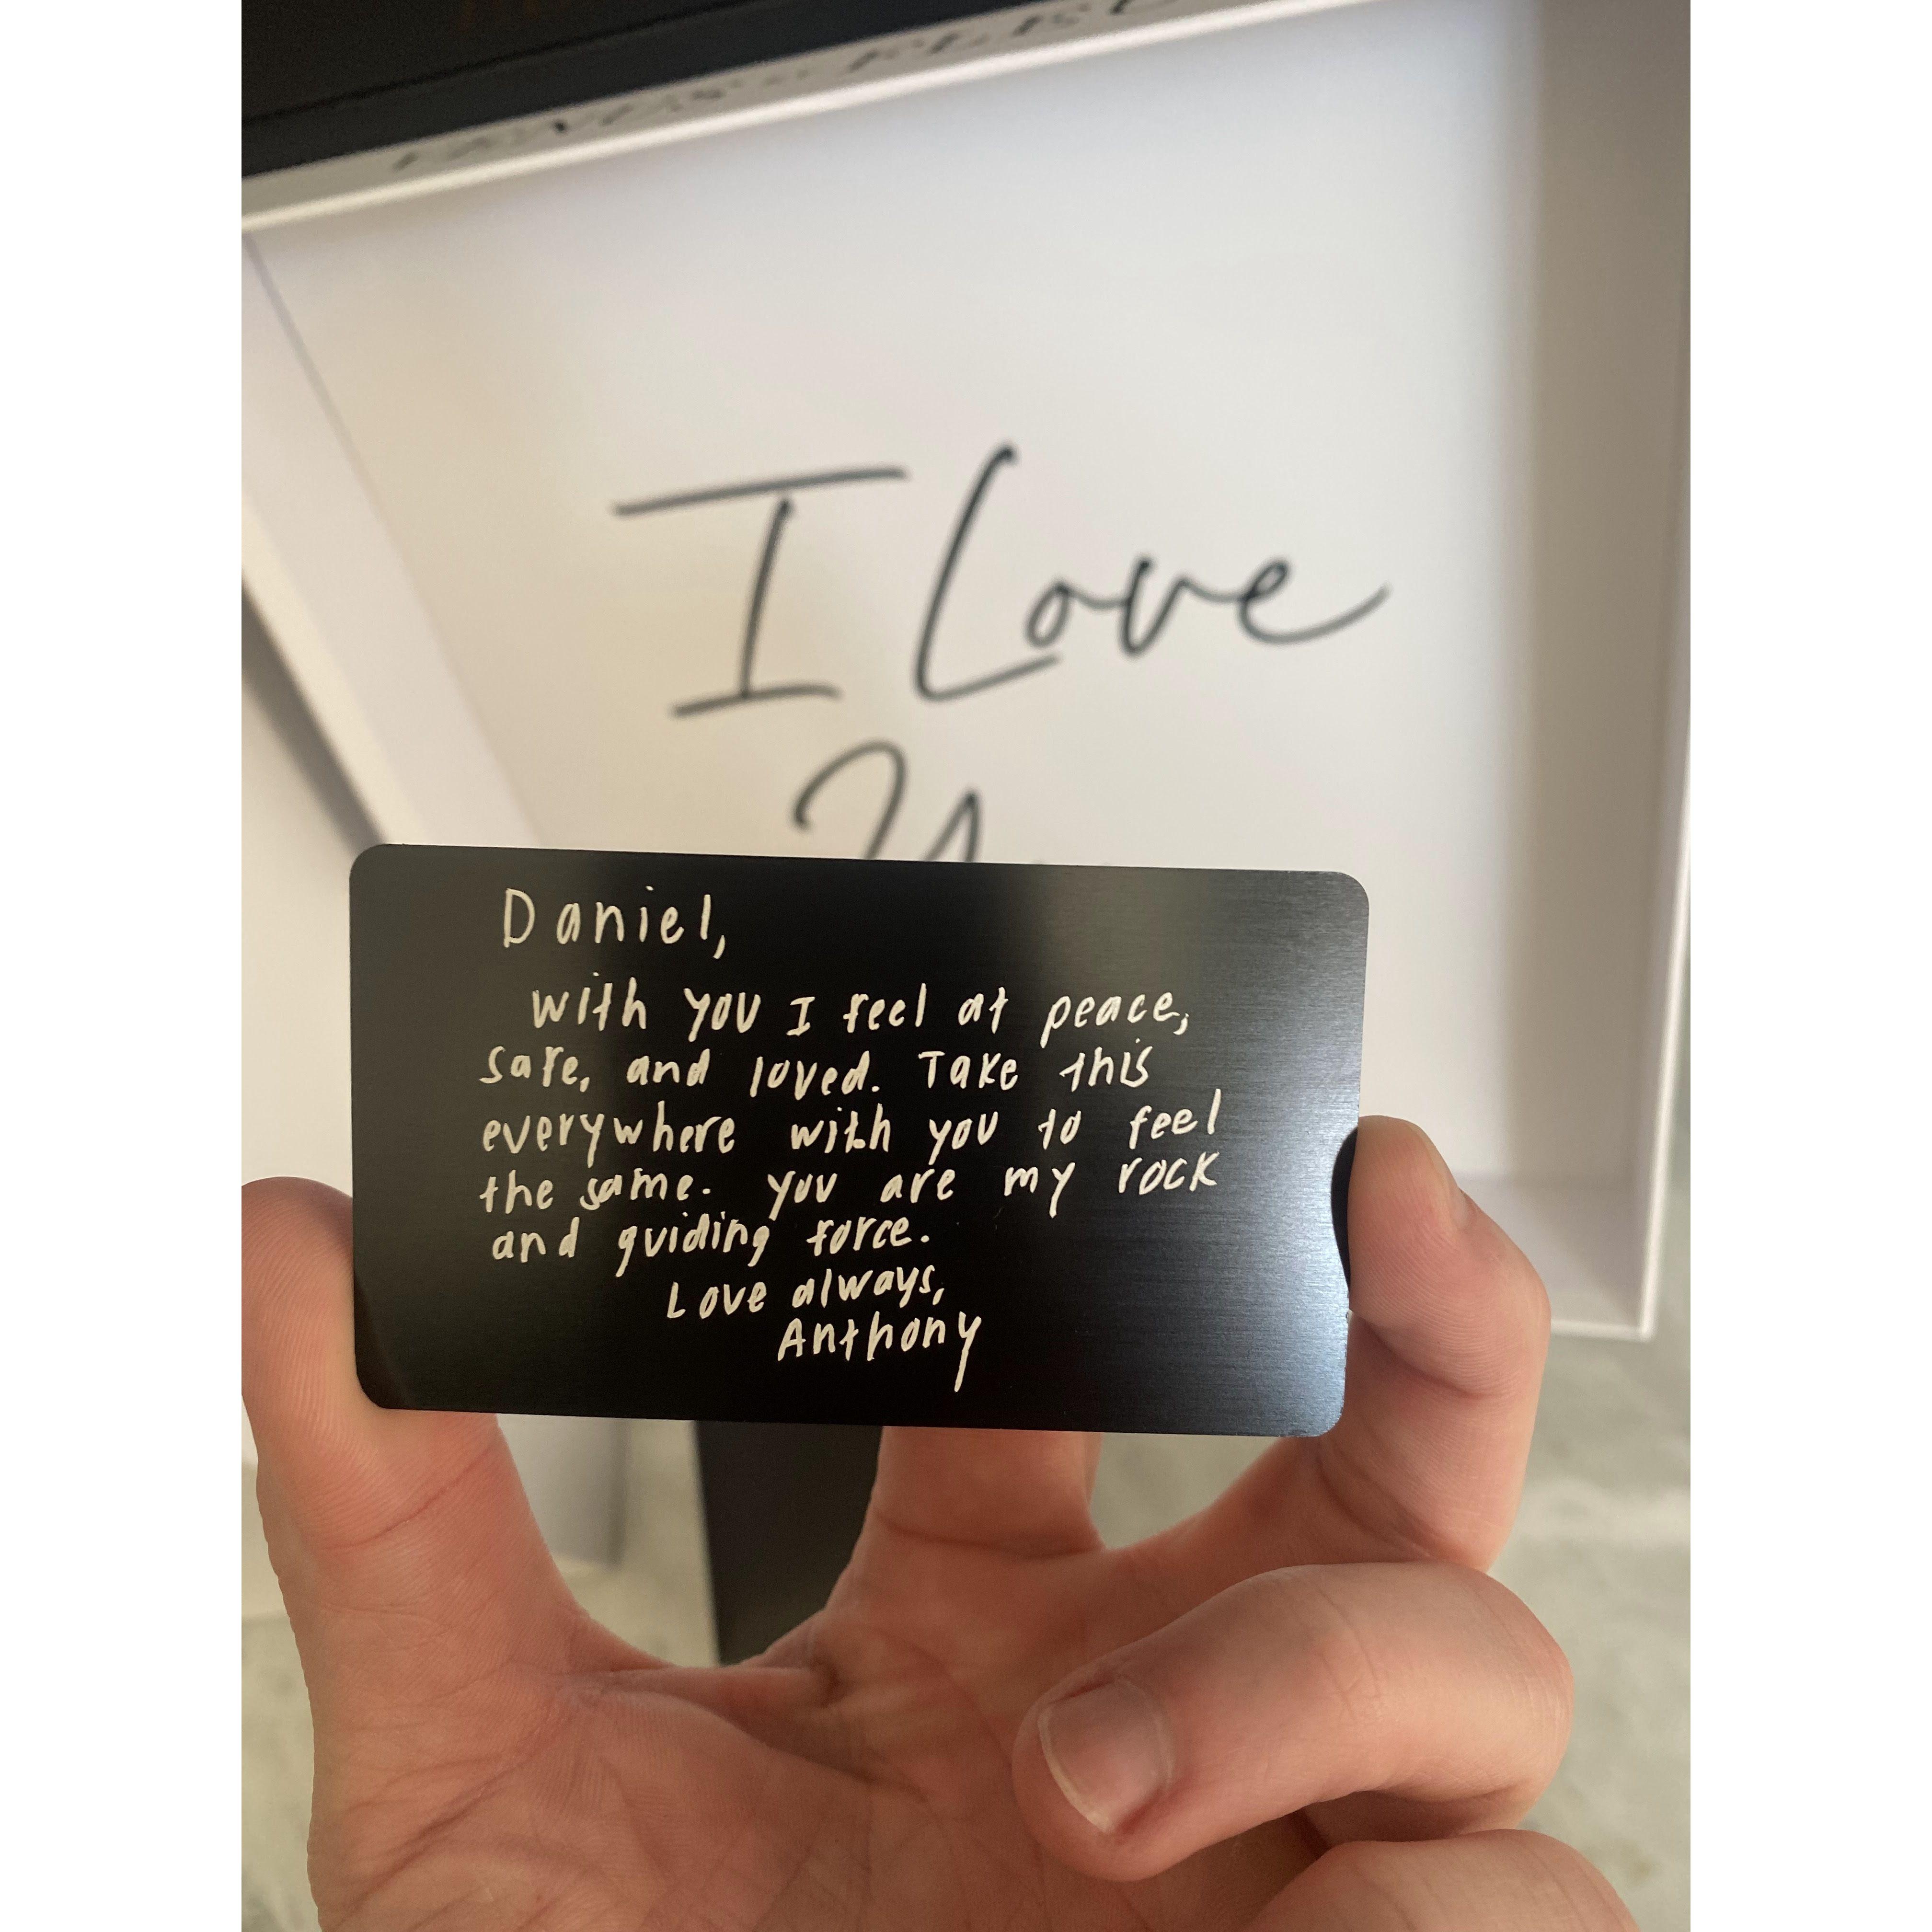 I Love
Daniel,
with you I feel at peace,
safe, and loved. Take this
everywhere with you to feel
the same. you are my rock
and guiding force.
Love always,
Anthony